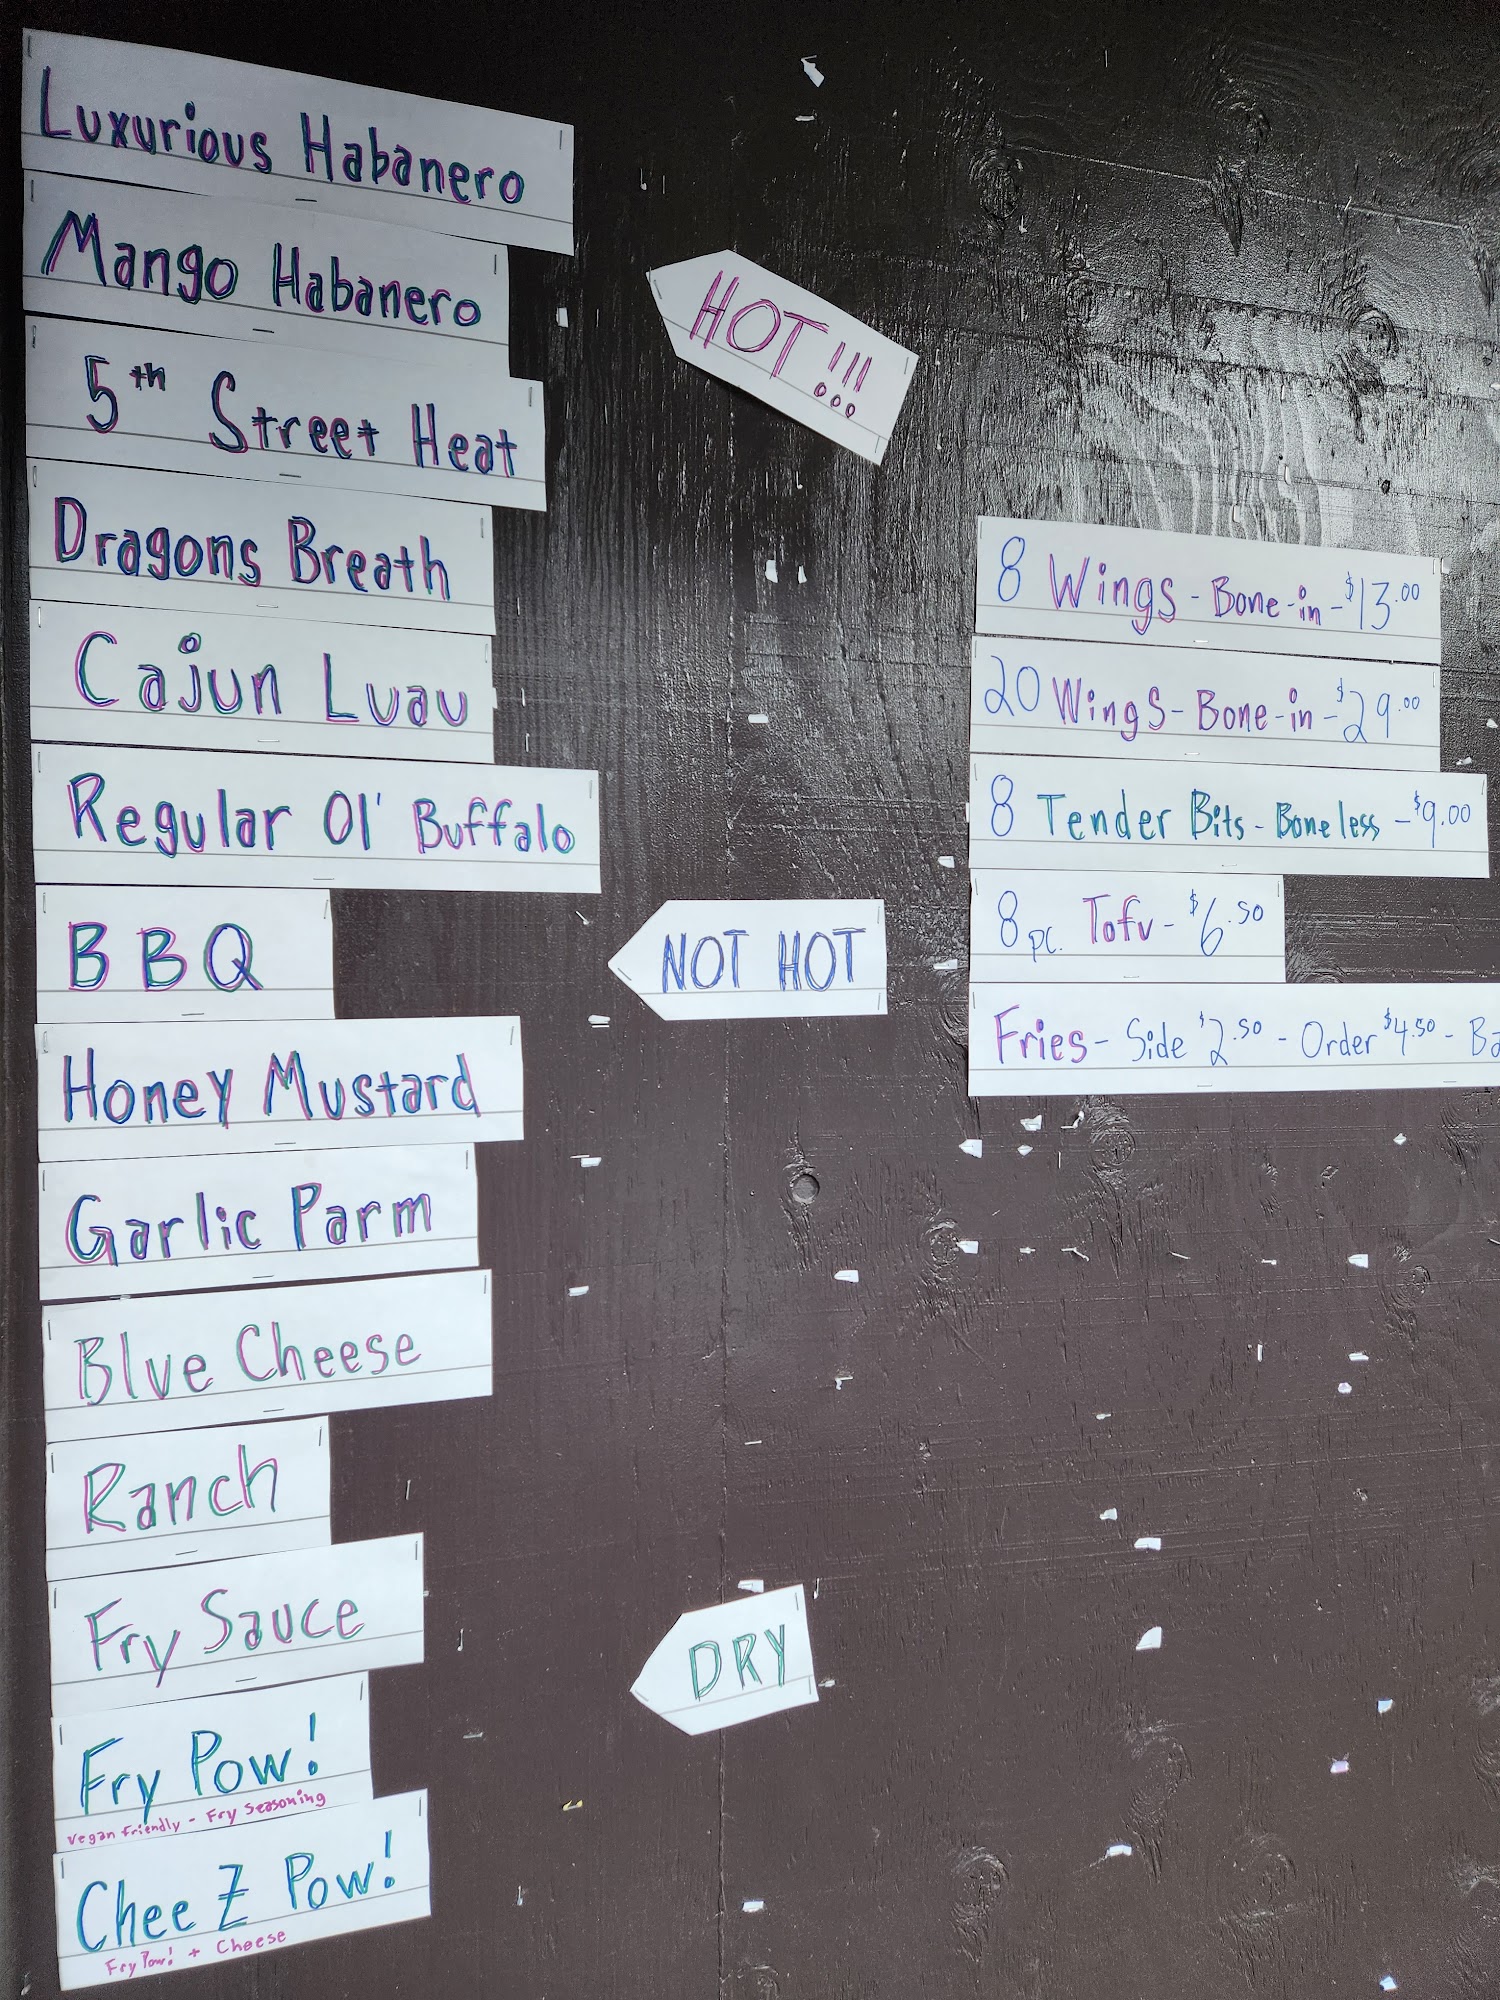 Luxurious Habanero
Mango Habanero
5th Street Heat
Dragons Breath
Cajun Luau
Regular Ol' Buffalo
BBQ
Honey Mustard
Garlic Parm
Blue Cheese
Ranch
Fry Sauce
Fry Pow!
Vegan Friendly - Fry Seasoning
CheeZ Pow!
Fry Pow! + Cheese
HOT!!!
NOT HOT
DRY
8 Wings - Bone-in - $13.00
20 Wings - Bone-in - $29.00
8 Tender Bits - Boneless - $9.00
8 pc. Tofu - $6.50
Fries - Side $2.50 - Order $4.50 -